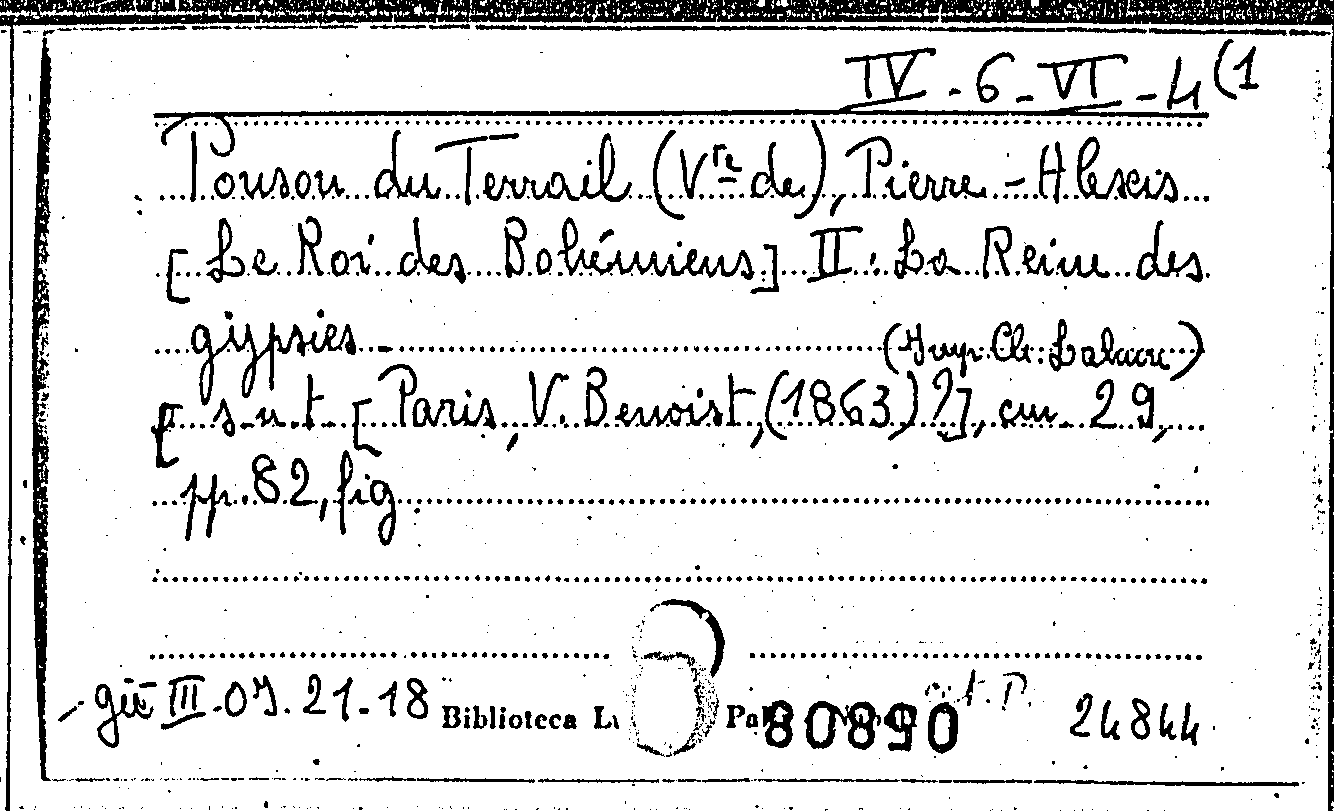 IV-6-VI-4(1
Ponson du Terrail (Vte de), Pierre-Alexis
[Le Roi des Bohémiens] II: La Reine des
gypsies.
(Imp. Ch. Lahure)
[ s.n.t. [Paris, V. Benoist, (1863)?], cm. 29,
pp. 82, fig.
già III-07.21-18 Biblioteca 24844